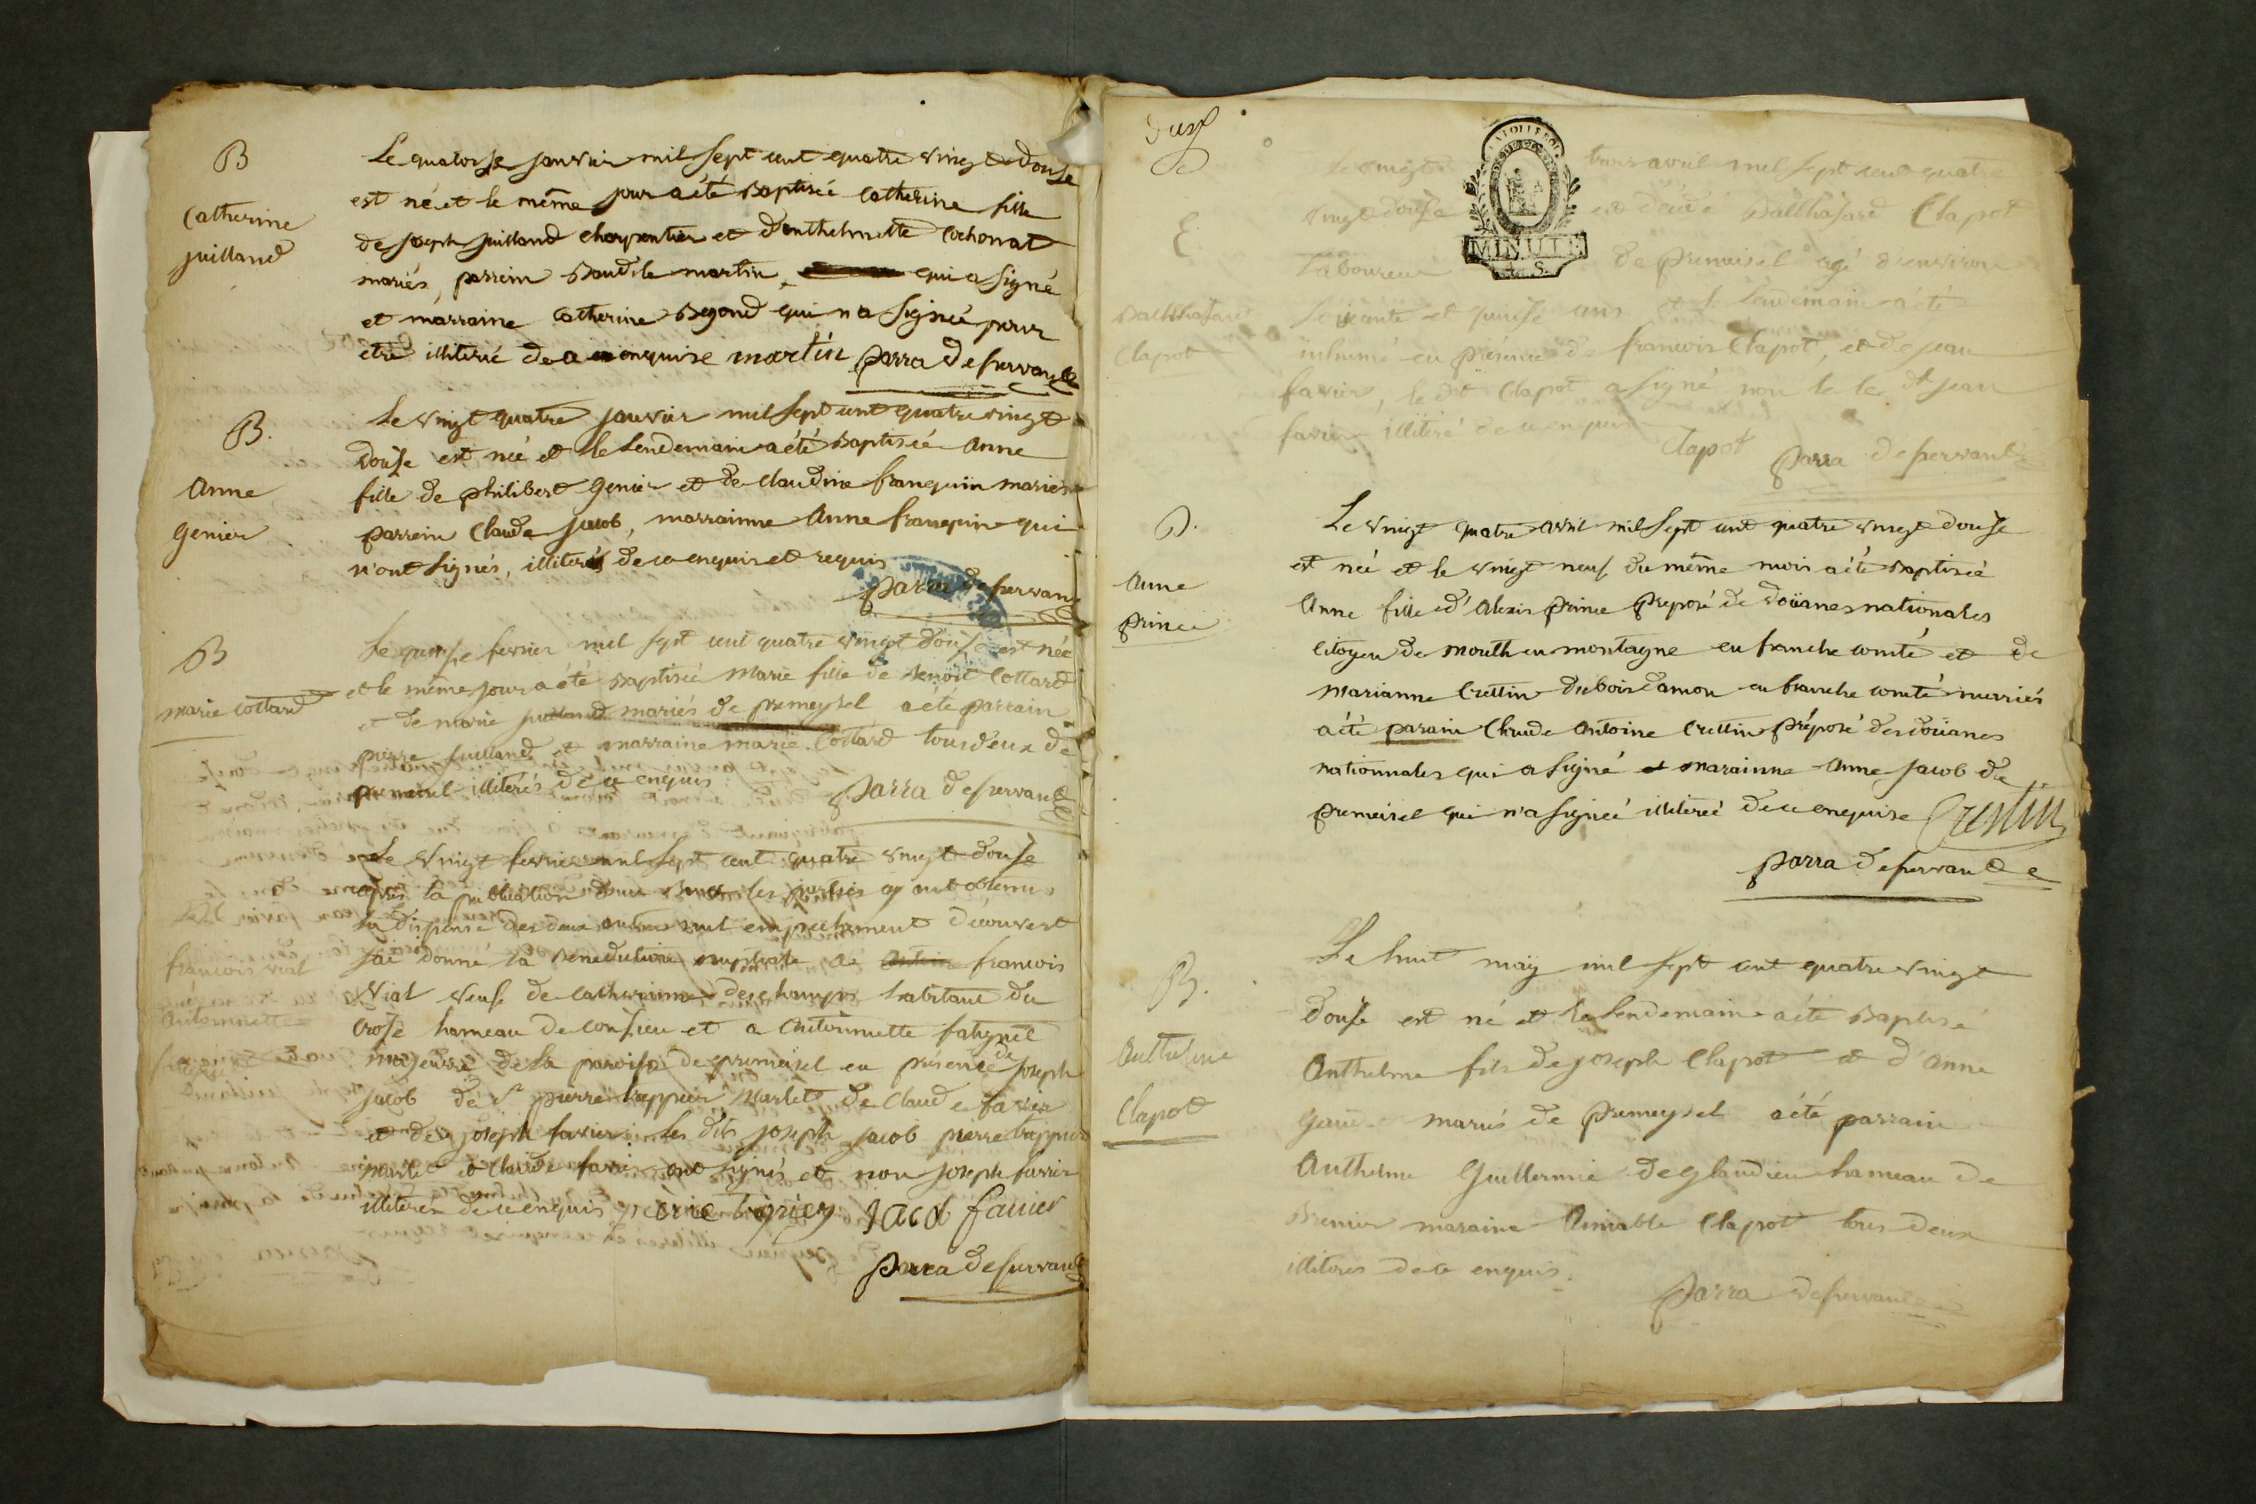 B
Catherine
juilland
Le quatorse janvier mil sept cent quatre vingt douse
est né et le même jour a été baptisée Catherine fille
de joseph juilland charpentier et d'enthelmette Cochonat
mariés, parrein Baudile martin qui a signé
et marraine Catherine Begond qui n'a signée pour
etre illiteré de ce enquise martin parra desservant
B.
Anne
genier
Le vingt quatre janvier mil sept cent quatre vingt
douse est née et le lendemain a été baptisée anne
fille de philibert genier et de claudine franquin mariés
parrein Claude jacob, marrainne Anne franquin qui
n'ont signés, illiterés de ce enquis et requis
parra desservant
B
marie Cottard
Le quinse fevrier mil sept cent quatre vingt douse est née
et le même jour a été baptisée marie fille de benoit Cottard
et de marie juilland mariés de premeysel a été parrain
pierre juilland et marraine marie Cottard tous deux de
premeisel illiterés de ce enquis parra desservant
françois vial
antoinnette
Le vingt fevrier mil sept cent quatre vingt douse
après la publication d'un banc les parties ayant obtenus
la dispense des deux autres nul empechement découvert
j'ai donné la benediction nuptiale a françois
vial veuf de catherinne deschamps habitant du
crose hameau de et a antoinnette
majeure de la paroisse de premeisel en présence de joseph
jacob de st pierre trappier marlet de claude favier
et de joseph favier. les dits joseph jacob pierre trappier
marlet et claude favier ont signés et non joseph favier
illiterés de ce enquis pierre trapier jacob favier
parra desservant
deux
E
Balthasard
Clapot
Le vingt trois avril mil sept cent quatre
vingt douse est décédé Balthasard Clapot
laboureur de premeisel agé d'environ
soixante et quinse ans et le lendemain a été
inhumé en présence de francois Clapot, et de jean
favier, le dit Clapot a signé, non le le dt jean
favier illiteré de ce enquis
Clapot parra desservant
B.
anne
prince
Le vingt quatre avril mil sept cent quatre vingt douse
est née et le vingt neuf du même mois a été baptisée
Anne fille d'alexis prince préposé de doüanes nationales
citoyen de mouth en montagne en franche comté et de
marianne Crettin du bois d'amon en franche comté marriés
a été parain Claude antoine Crettin préposé des doüanes
nationnales qui a signé et marainne anne jacob de
premeisel qui n'a signée illiterée de ce enquise Crettin
parra desservant
B.
anthelme
Clapot
Le huit may mil sept cent quatre vingt
douse est né et le lendemain a été baptisé
Anthelme fils de joseph Clapot et d'anne
mariés de premeysel a été parrain
Anthelme Guillermie de glandieu hameau de
Brenier maraine Aimable Clapot tous deux
illiterés de ce enquis.
parra desservant
MINUTE
4. S.